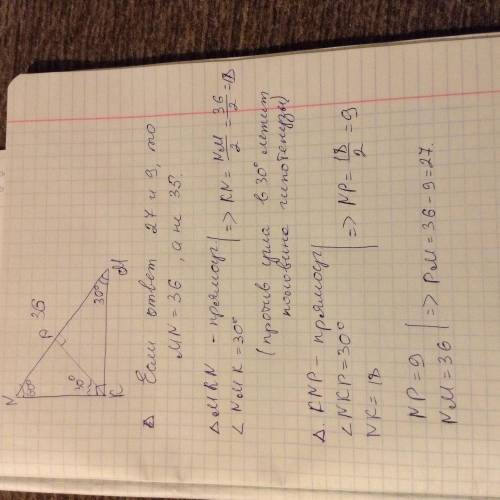 N
60°
P
36
30°
K
30°
M
Δ Если ответ 27 и 9, то
MN = 36, а не 35.
Δ MKN - прямоуг
∠ NMK = 30° | => KN = NM/2 = 36/2 = 18
(против угла в 30° лежит
половина гипотенузы)
Δ. KNP - прямоуг
∠ NKP = 30° | => NP = 18/2 = 9
NK = 18
NP = 9
NM = 36 | => PM = 36 - 9 = 27.